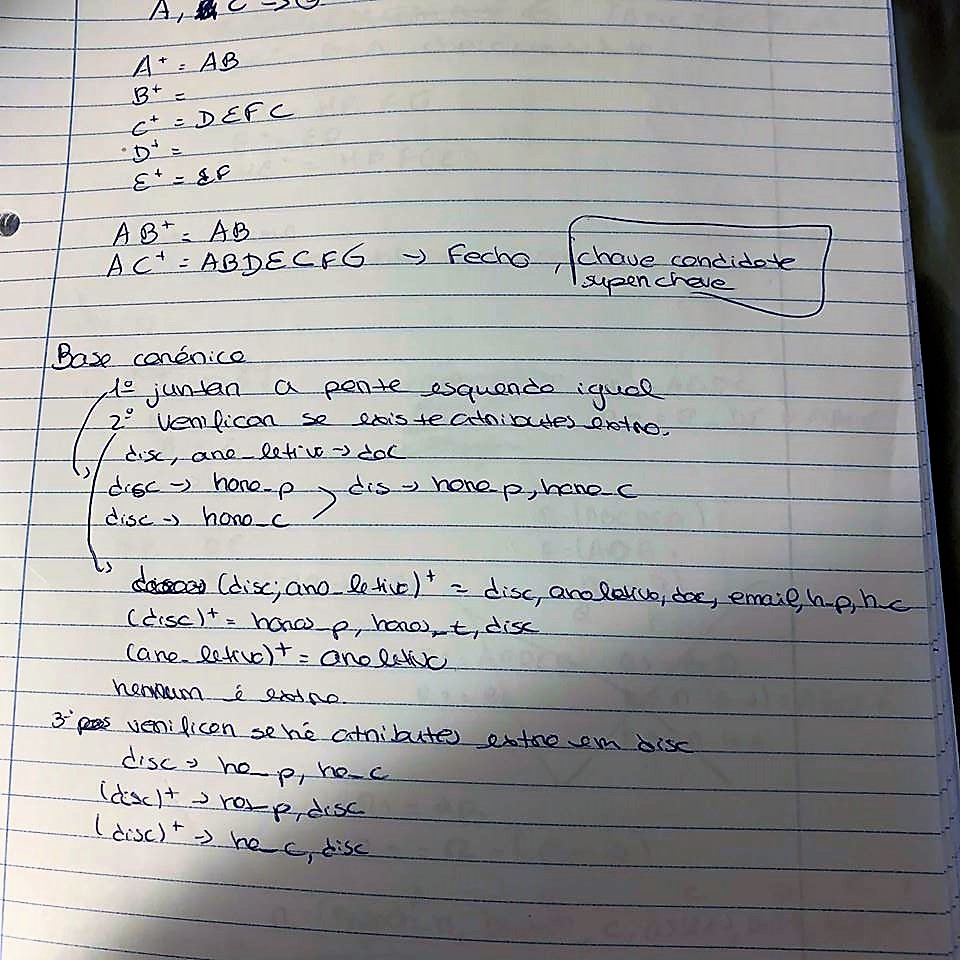 A, C → G
A⁺ = AB
B⁺ =
C⁺ = DEFC
D⁺ =
E⁺ = EF
AB⁺ = AB
AC⁺ = ABDECFG → Fecho, chave candidate
superchave
Base canónica
1º juntar a parte esquerda igual
2º verificar se existe atributos extra.
disc, ano_letivo → doc
disc → hora_p > dis → hora_p, hora_c
disc → hora_c
(disc, ano_letivo)⁺ = disc, anoletivo, doc, email, h_p, h_c
(disc)⁺ = horas_p, horas_t, disc
(ano_letivo)⁺ = anoletivo
nenhum é extra.
3º verificar se há atributos extra em disc
disc → ho_p, ho_c
(disc)⁺ → ho_p, disc
(disc)⁺ → ho_c, disc